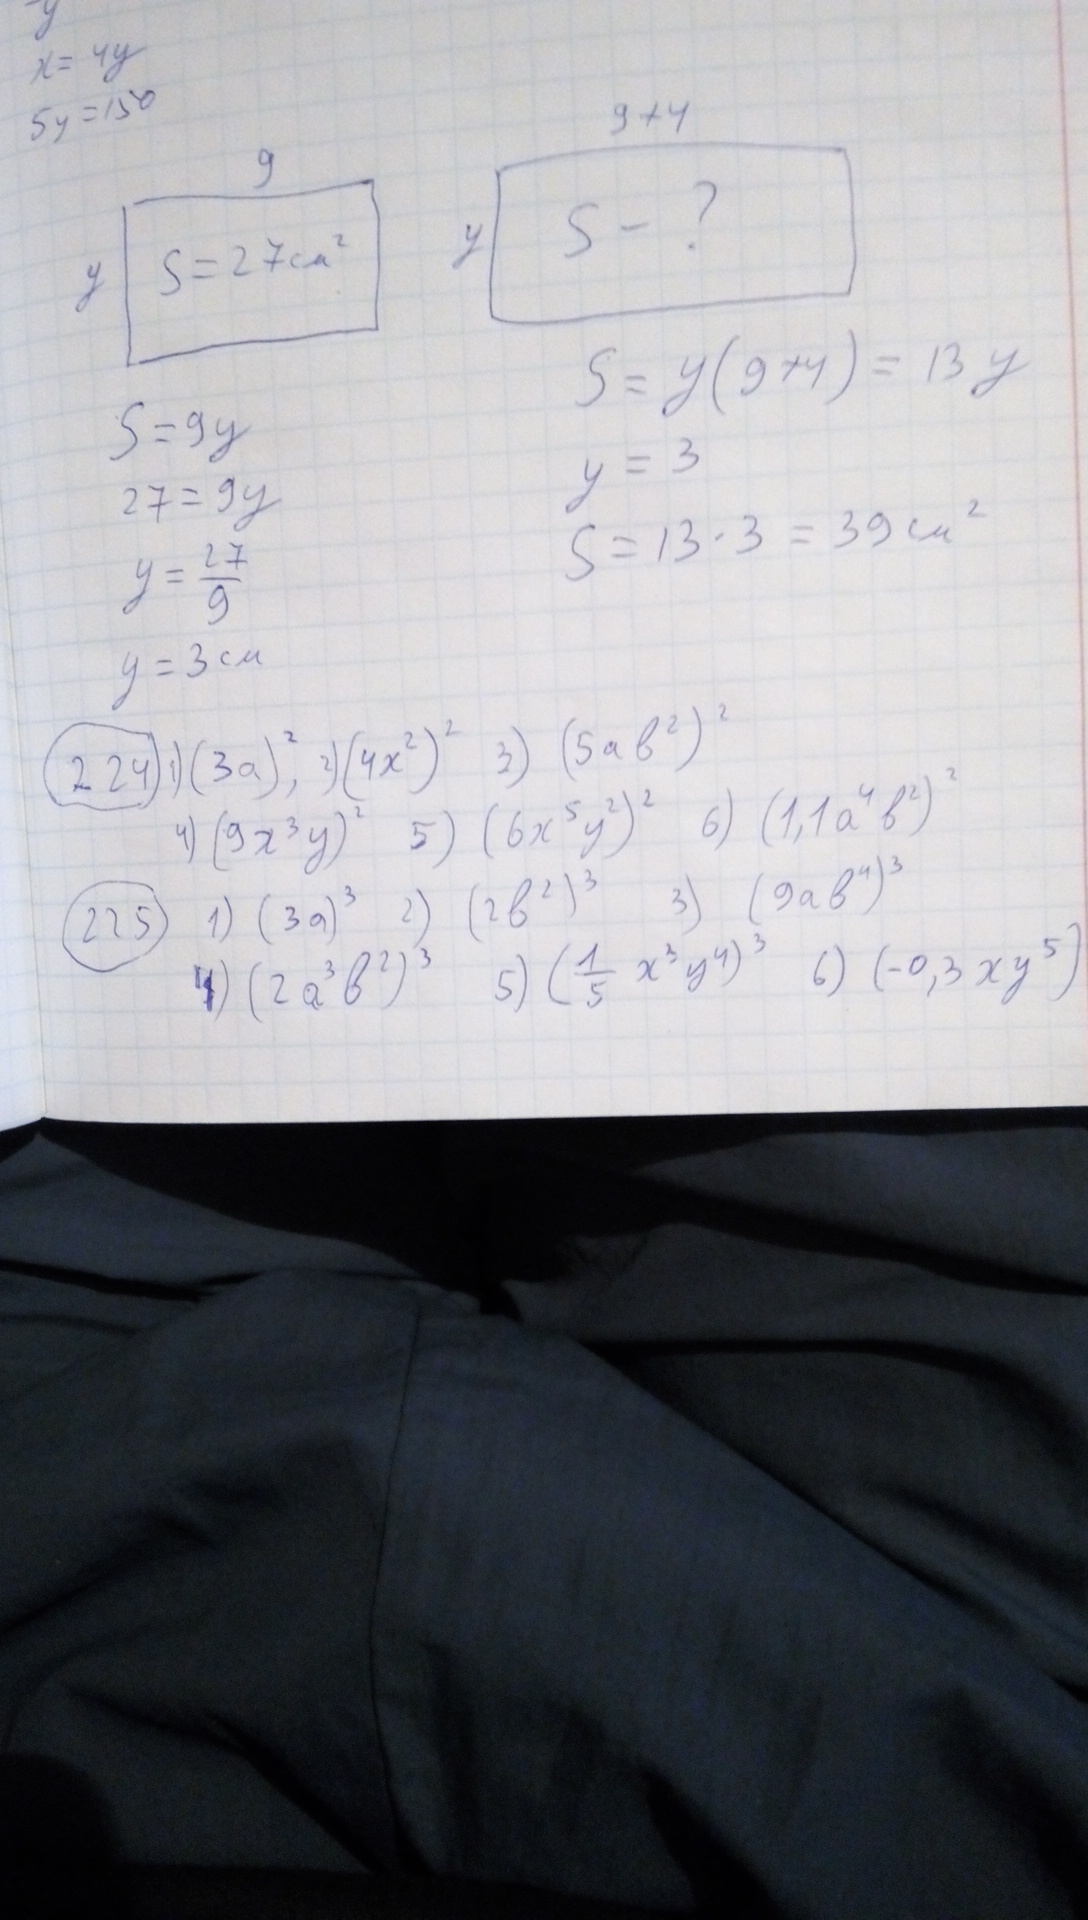 y
x = 4y
5y = 150
9
y
S = 27 см²
9+4
y
S - ?
S = 9y
27 = 9y
y = 27/9
y = 3 см
S = y(9+4) = 13y
y = 3
S = 13·3 = 39 см²
224 1) (3a)², 2) (4x²)² 3) (5ab²)²
4) (9x³y)² 5) (6x⁵y²)² 6) (1,1a⁴b²)²
225 1) (3a)³ 2) (2b²)³ 3) (9ab⁴)³
4) (2a³b²)³ 5) (1/5 x³y⁴)³ 6) (-0,3xy⁵)